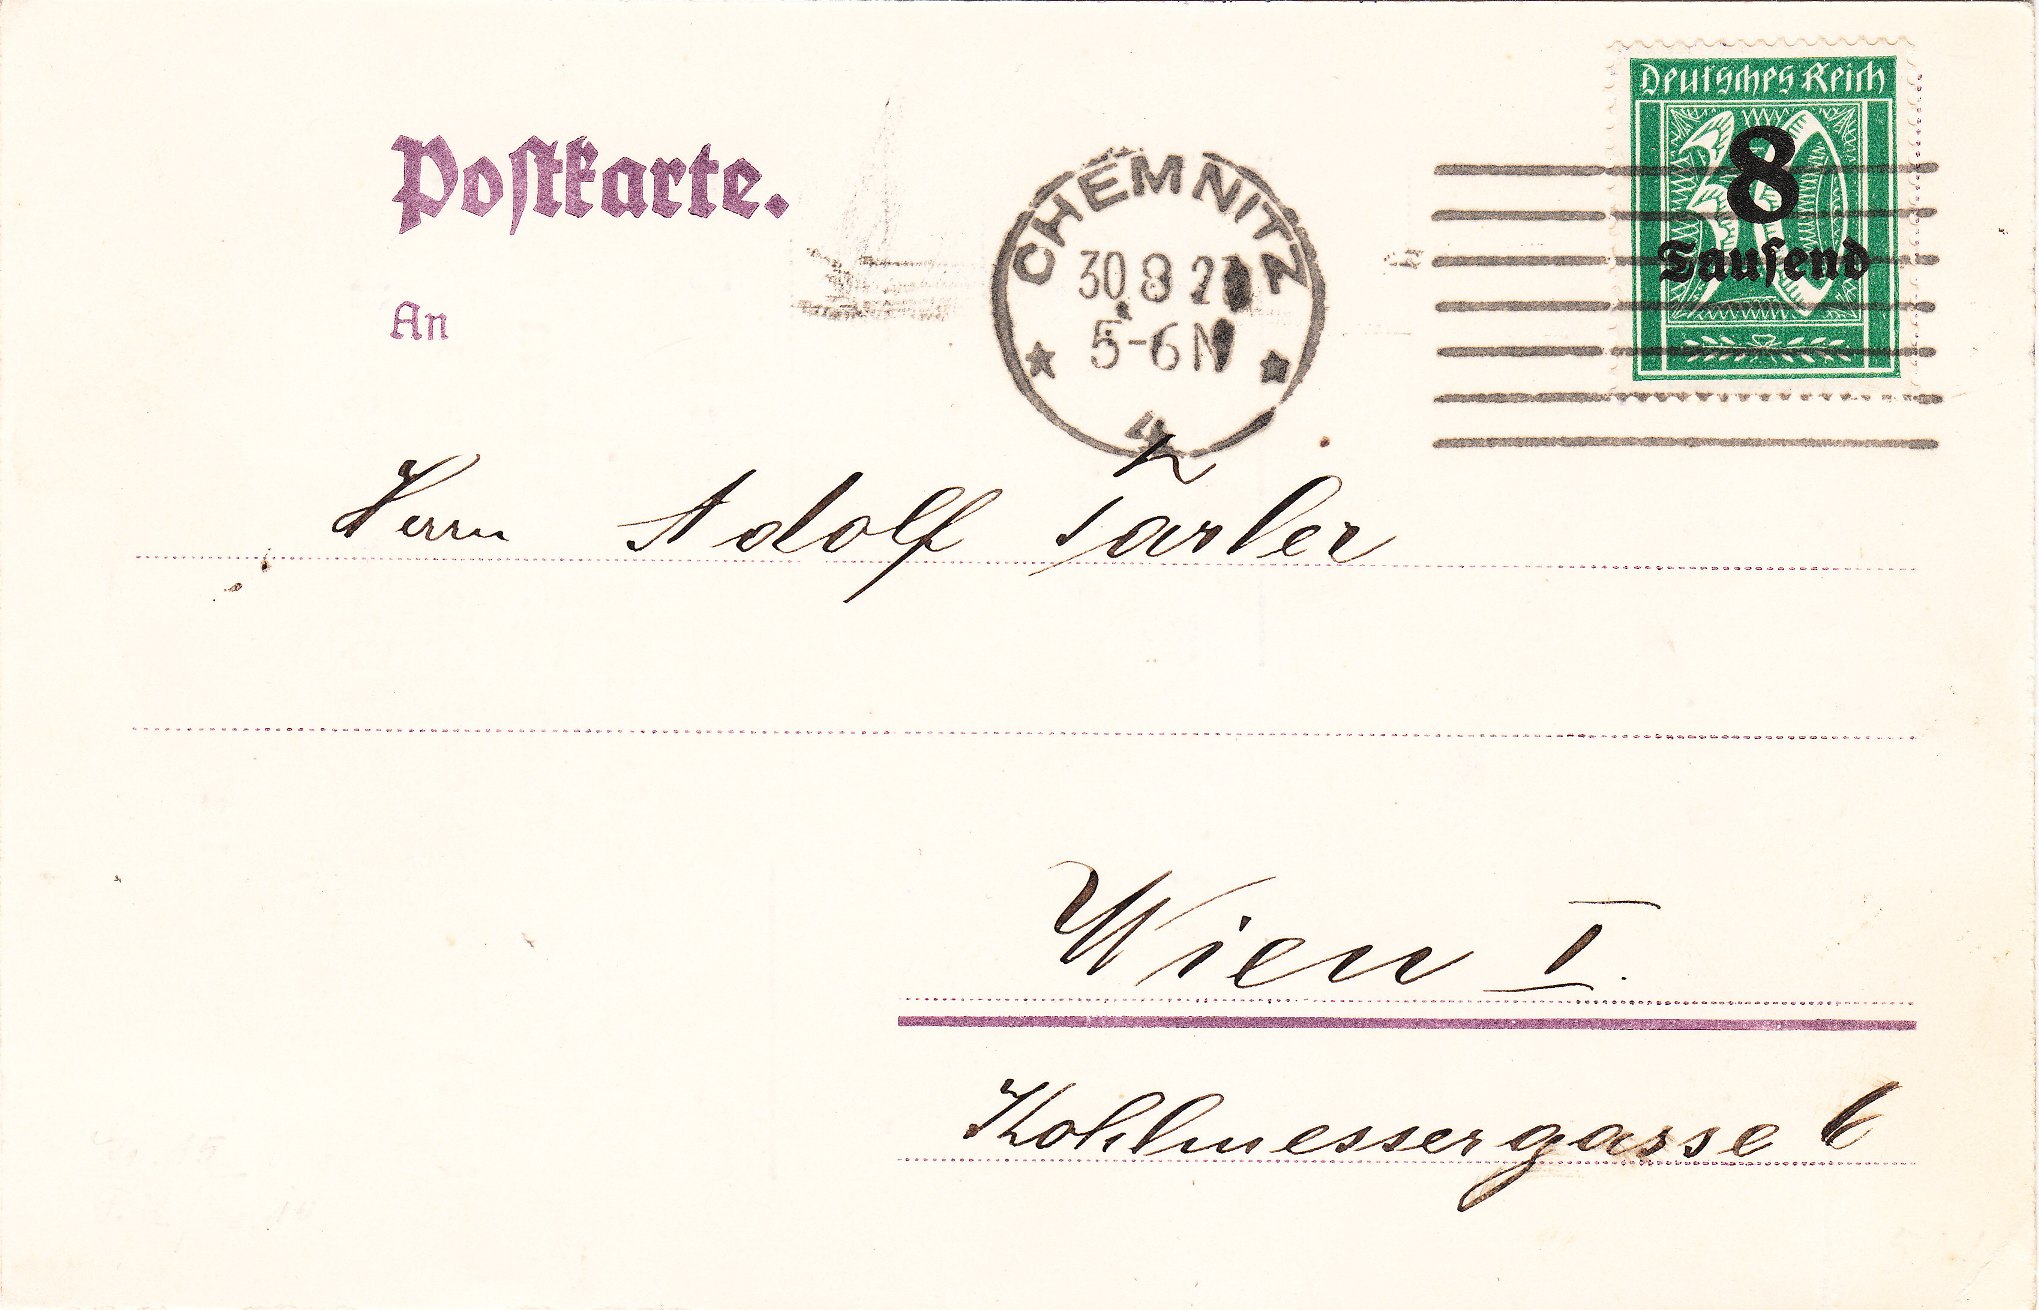 Deutsches Reich
30
8
Tausend
Postkarte.
CHEMNITZ
30 8 23
5-6 N
4
An
Herrn Adolf
Wien I.
Kohlmessergasse 6